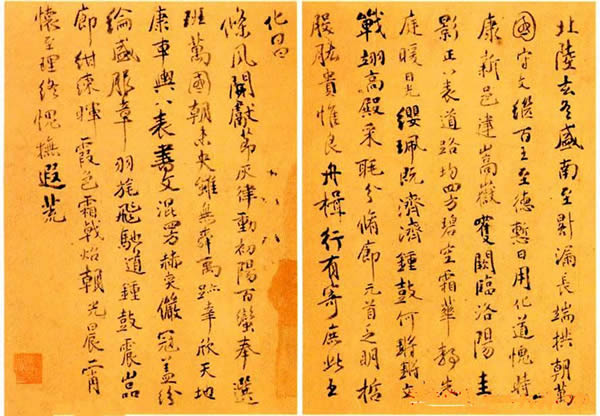 北陸玄冬盛南至晷漏長端拱朝萬
國守文繼百王至德慙日用化道愧時
康新邑建嵩嶽雙闕臨洛陽圭
影正八表道路均四方碧空霜華轉朱
庭暖日光纓珮既濟濟鍾鼓何鍠鍠文
戟翊高殿采眊分脩廊元首乏明哲
股肱貴惟良舟檝行有寄庶此王
化昌
條風開獻節灰律動初陽百蠻奉遐
班萬國朝未央雖無舜禹跡幸欣天地
康車輿八表書文混四方赫奕儼冠盖紛
綸盛服章羽旄飛馳道鍾鼓震嵒
廊組練輝霞色霜戟焰朝光晨霄
懷至理終愧撫遐荒